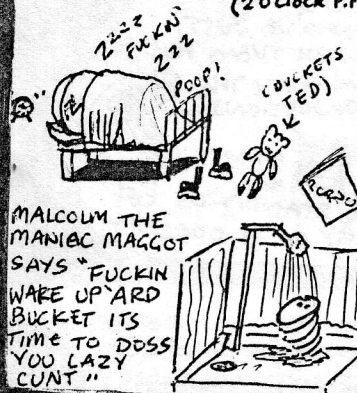 (2 O'CLOCK P.M
ZZZZ
FUCKIN'
ZZZ
POOP!
(BUCKETS
TED)
PORNO
MALCOLM THE
MANIAC MAGGOT
SAYS "FUCKIN
WAKE UP 'ARD
BUCKET ITS
TIME TO DOSS
YOU LAZY
CUNT"